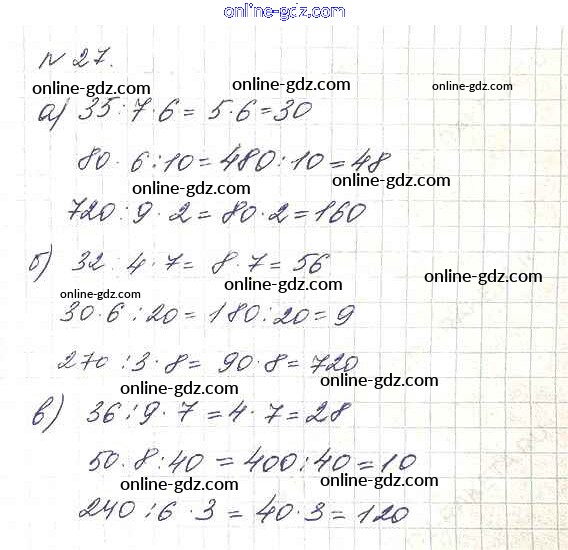 online-gdz.com
№ 27.
online-gdz.com online-gdz.com online-gdz.com
а) 35 : 7 · 6 = 5 · 6 = 30
80 · 6 : 10 = 480 : 10 = 48
online-gdz.com online-gdz.com
720 : 9 · 2 = 80 · 2 = 160
б) 32 : 4 · 7 = 8 · 7 = 56
online-gdz.com online-gdz.com online-gdz.com
30 · 6 : 20 = 180 : 20 = 9
270 : 3 · 8 = 90 · 8 = 720
online-gdz.com online-gdz.com
в) 36 : 9 · 7 = 4 · 7 = 28
50 · 8 : 40 = 400 : 40 = 10
online-gdz.com online-gdz.com online-gdz.com
240 : 6 · 3 = 40 · 3 = 120